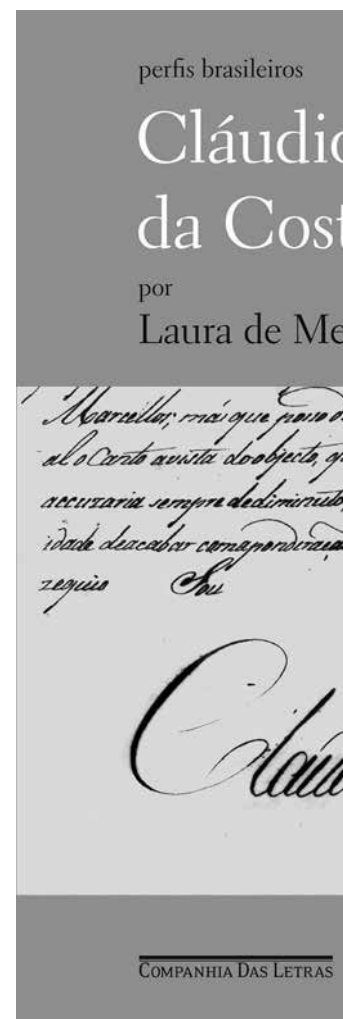 perfis brasileiros
Cláudio
da Cost
por
Laura de Me
Marcellos; mais que posso
al o Canto avista do objecto, q
accuzaria sempre dediminuto,
idade deacabar
zequio Sou
Clau
COMPANHIA DAS LETRAS